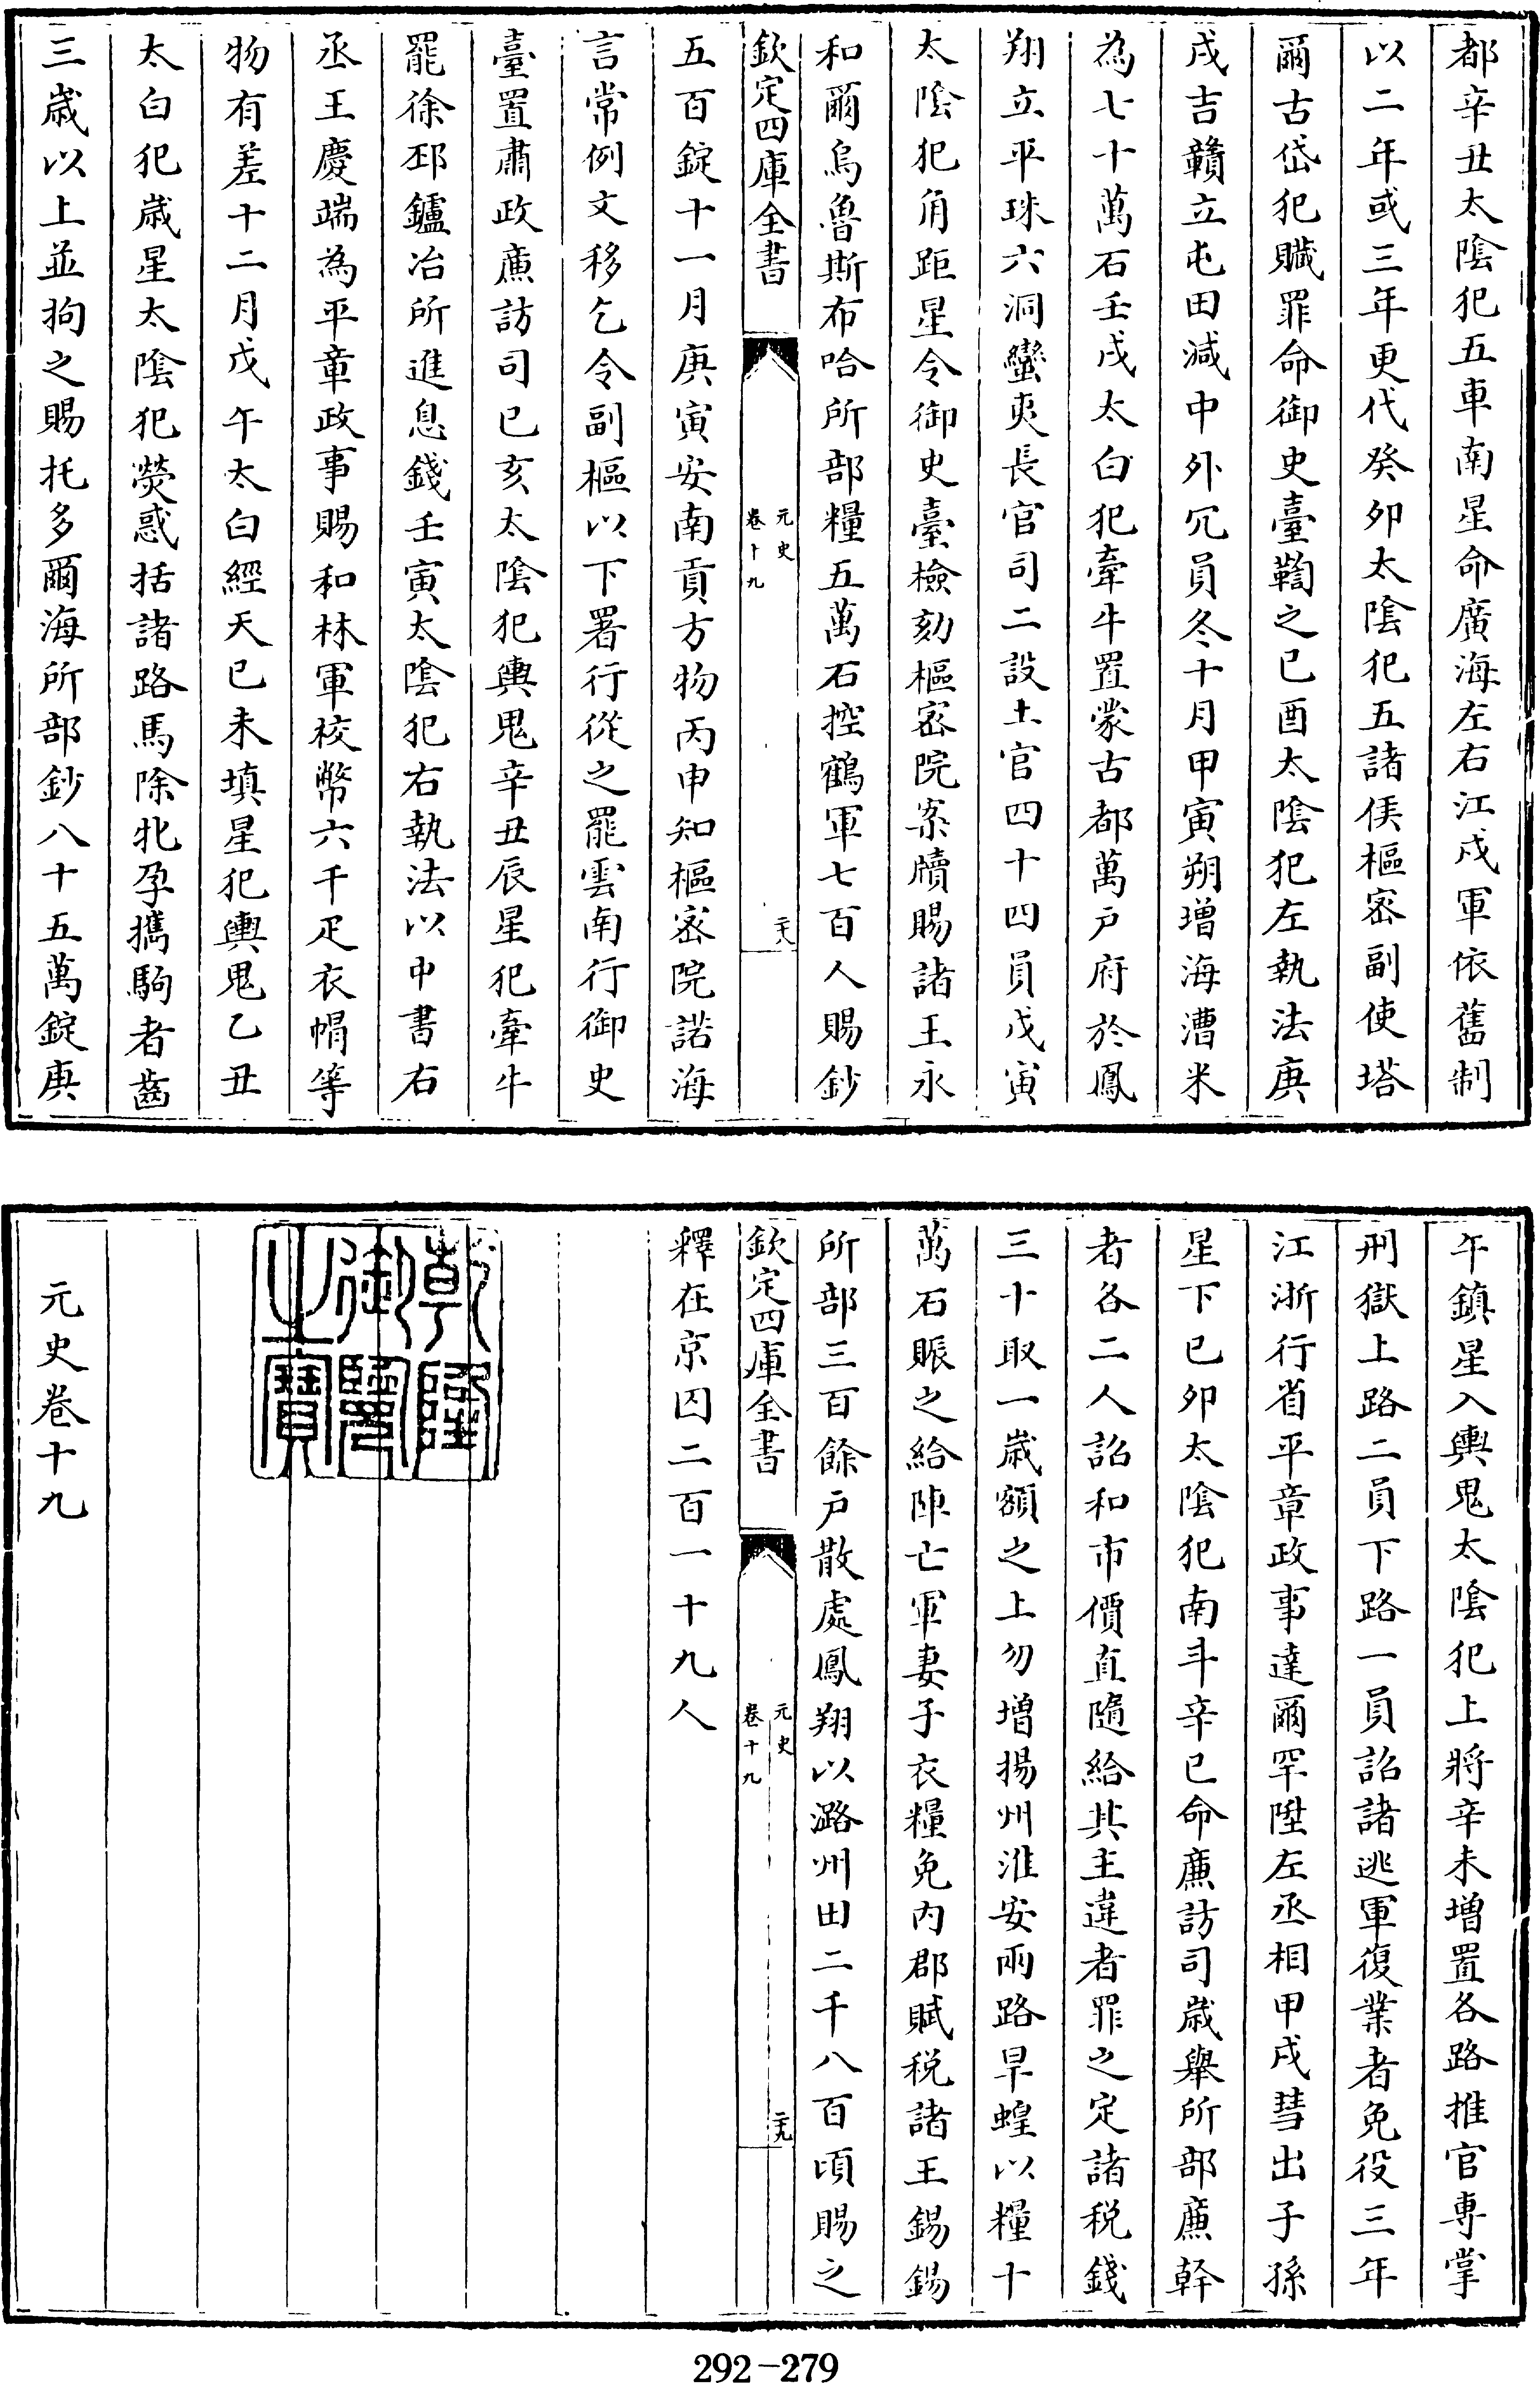 都辛丑太陰犯五車南星命廣海左右江戍軍依舊制
以二年或三年更代癸卯太陰犯五諸侯樞密副使塔
爾古岱犯贓罪命御史臺鞫之已酉太陰犯左執法庚
戌吉贛立屯田減中外冗員冬十月甲寅朔增海漕米
為七十萬石壬戌太白犯牽牛置蒙古都萬户府於鳳
翔立平珠六洞蠻夷長官司二設土官四十四員戊寅
太陰犯角距星令御史臺檢劾樞密院案牘賜諸王永
和爾烏魯斯布哈所部糧五萬石控鶴軍七百人賜鈔
欽定四庫全書
元史
卷十九
二十八
五百錠十一月庚寅安南貢方物丙申知樞密院諾海
言常例文移乞令副樞以下署行從之罷雲南行御史
臺置肅政廉訪司已亥太陰犯輿鬼辛丑辰星犯牽牛
罷徐邳鑪冶所進息錢壬寅太陰犯右執法以中書右
丞王慶端為平章政事賜和林軍校幣六千疋衣帽等
物有差十二月戊午太白經天已未填星犯輿鬼乙丑
太白犯歲星太陰犯熒惑括諸路馬除牝孕攜駒者齒
三歲以上並拘之賜托多爾海所部鈔八十五萬錠庚
午鎮星入輿鬼太陰犯上將辛未增置各路推官專掌
刑獄上路二員下路一員詔諸逃軍復業者免役三年
江浙行省平章政事達爾罕陞左丞相甲戌彗出子孫
星下已卯太陰犯南斗辛已命廉訪司歲舉所部廉幹
者各二人詔和市價直隨給其主違者罪之定諸税錢
三十取一歲額之上勿增揚州淮安兩路旱蝗以糧十
萬石賑之給陣亡軍妻子衣糧免内郡賦税諸王錫錫
所部三百餘户散處鳳翔以潞州田二千八百頃賜之
欽定四庫全書
元史
卷十九
二十九
釋在京囚二百一十九人
乾隆
御覽
之寶
元史卷十九
292-279